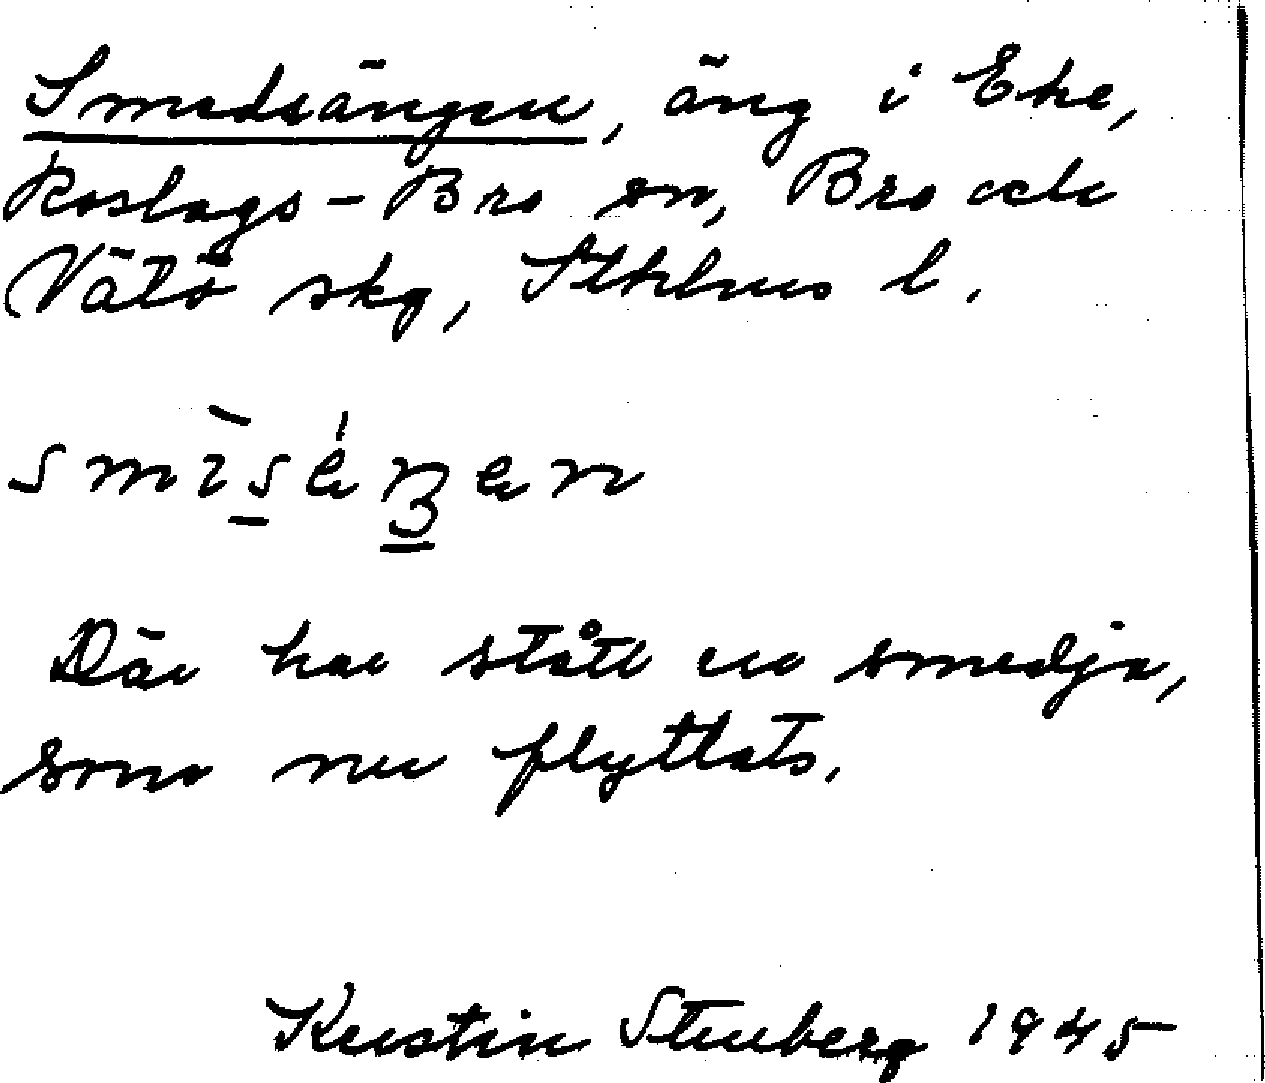 Smedsängen, äng i Eke,
Roslags-Bro sn, Bro och
Vätö skg, Sthlms l.
Där har stått en smedja,
som nu flyttats.
Kerstin Stenberg 1945